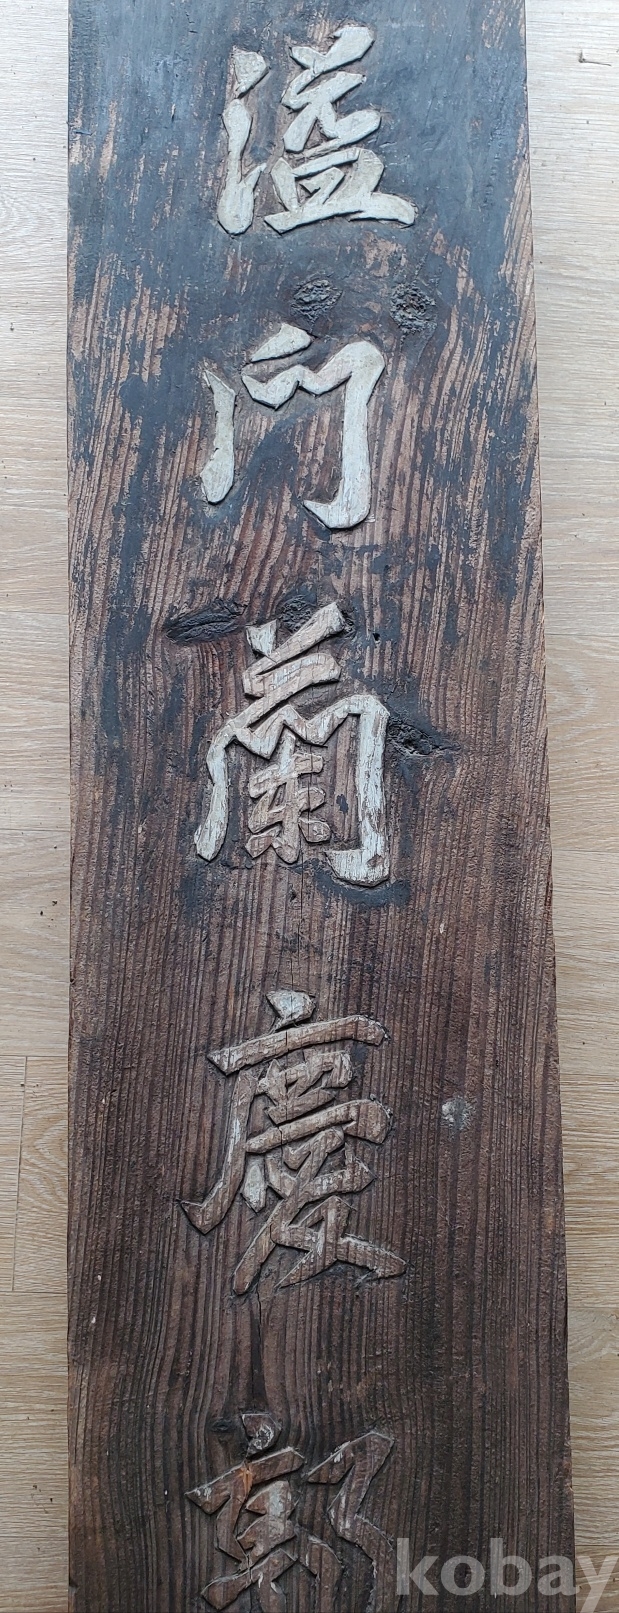 溢門蘭慶郭
kobay